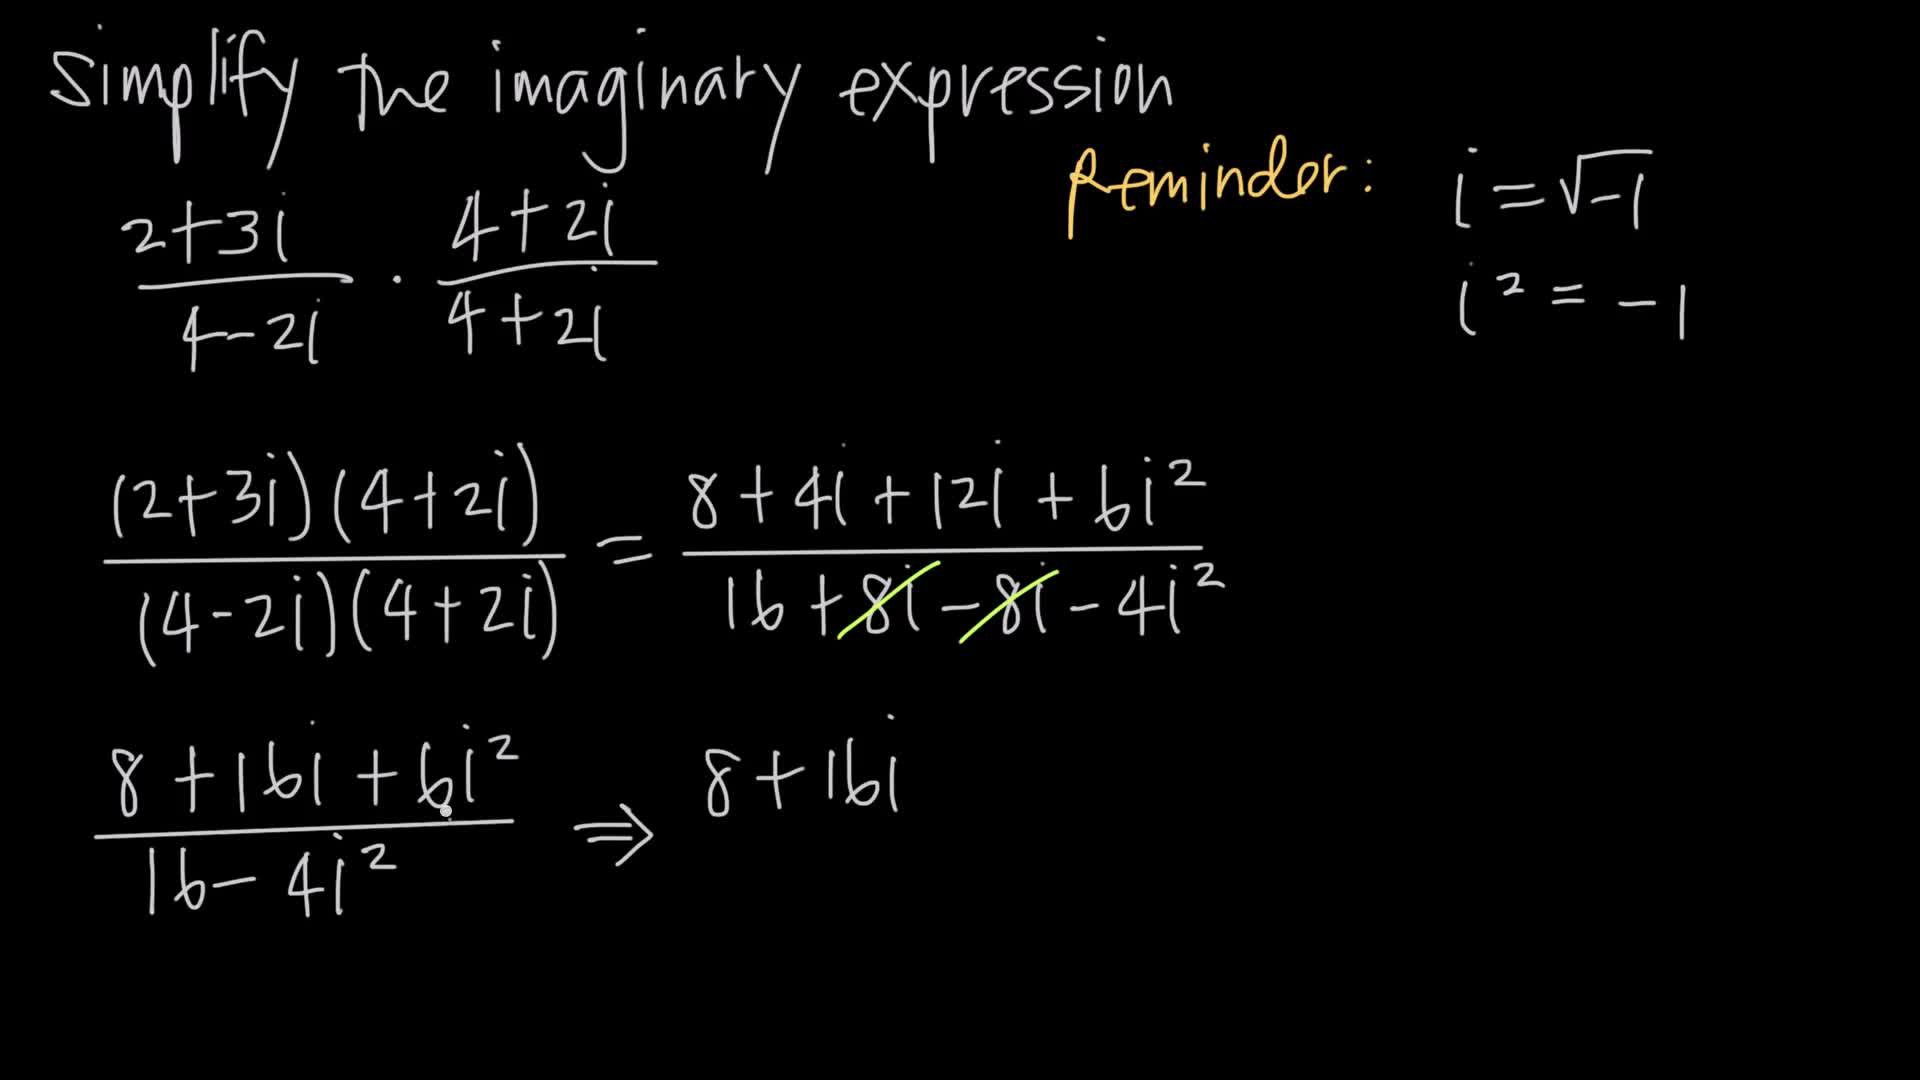 Simplify the imaginary expression
Reminder: i = √-1
i² = -1
2+3i / 4-2i · 4+2i / 4+2i
(2+3i)(4+2i) / (4-2i)(4+2i) = 8+4i+12i+6i² / 16+8i-8i-4i²
8+16i+6i² / 16-4i² ⇒ 8+16i